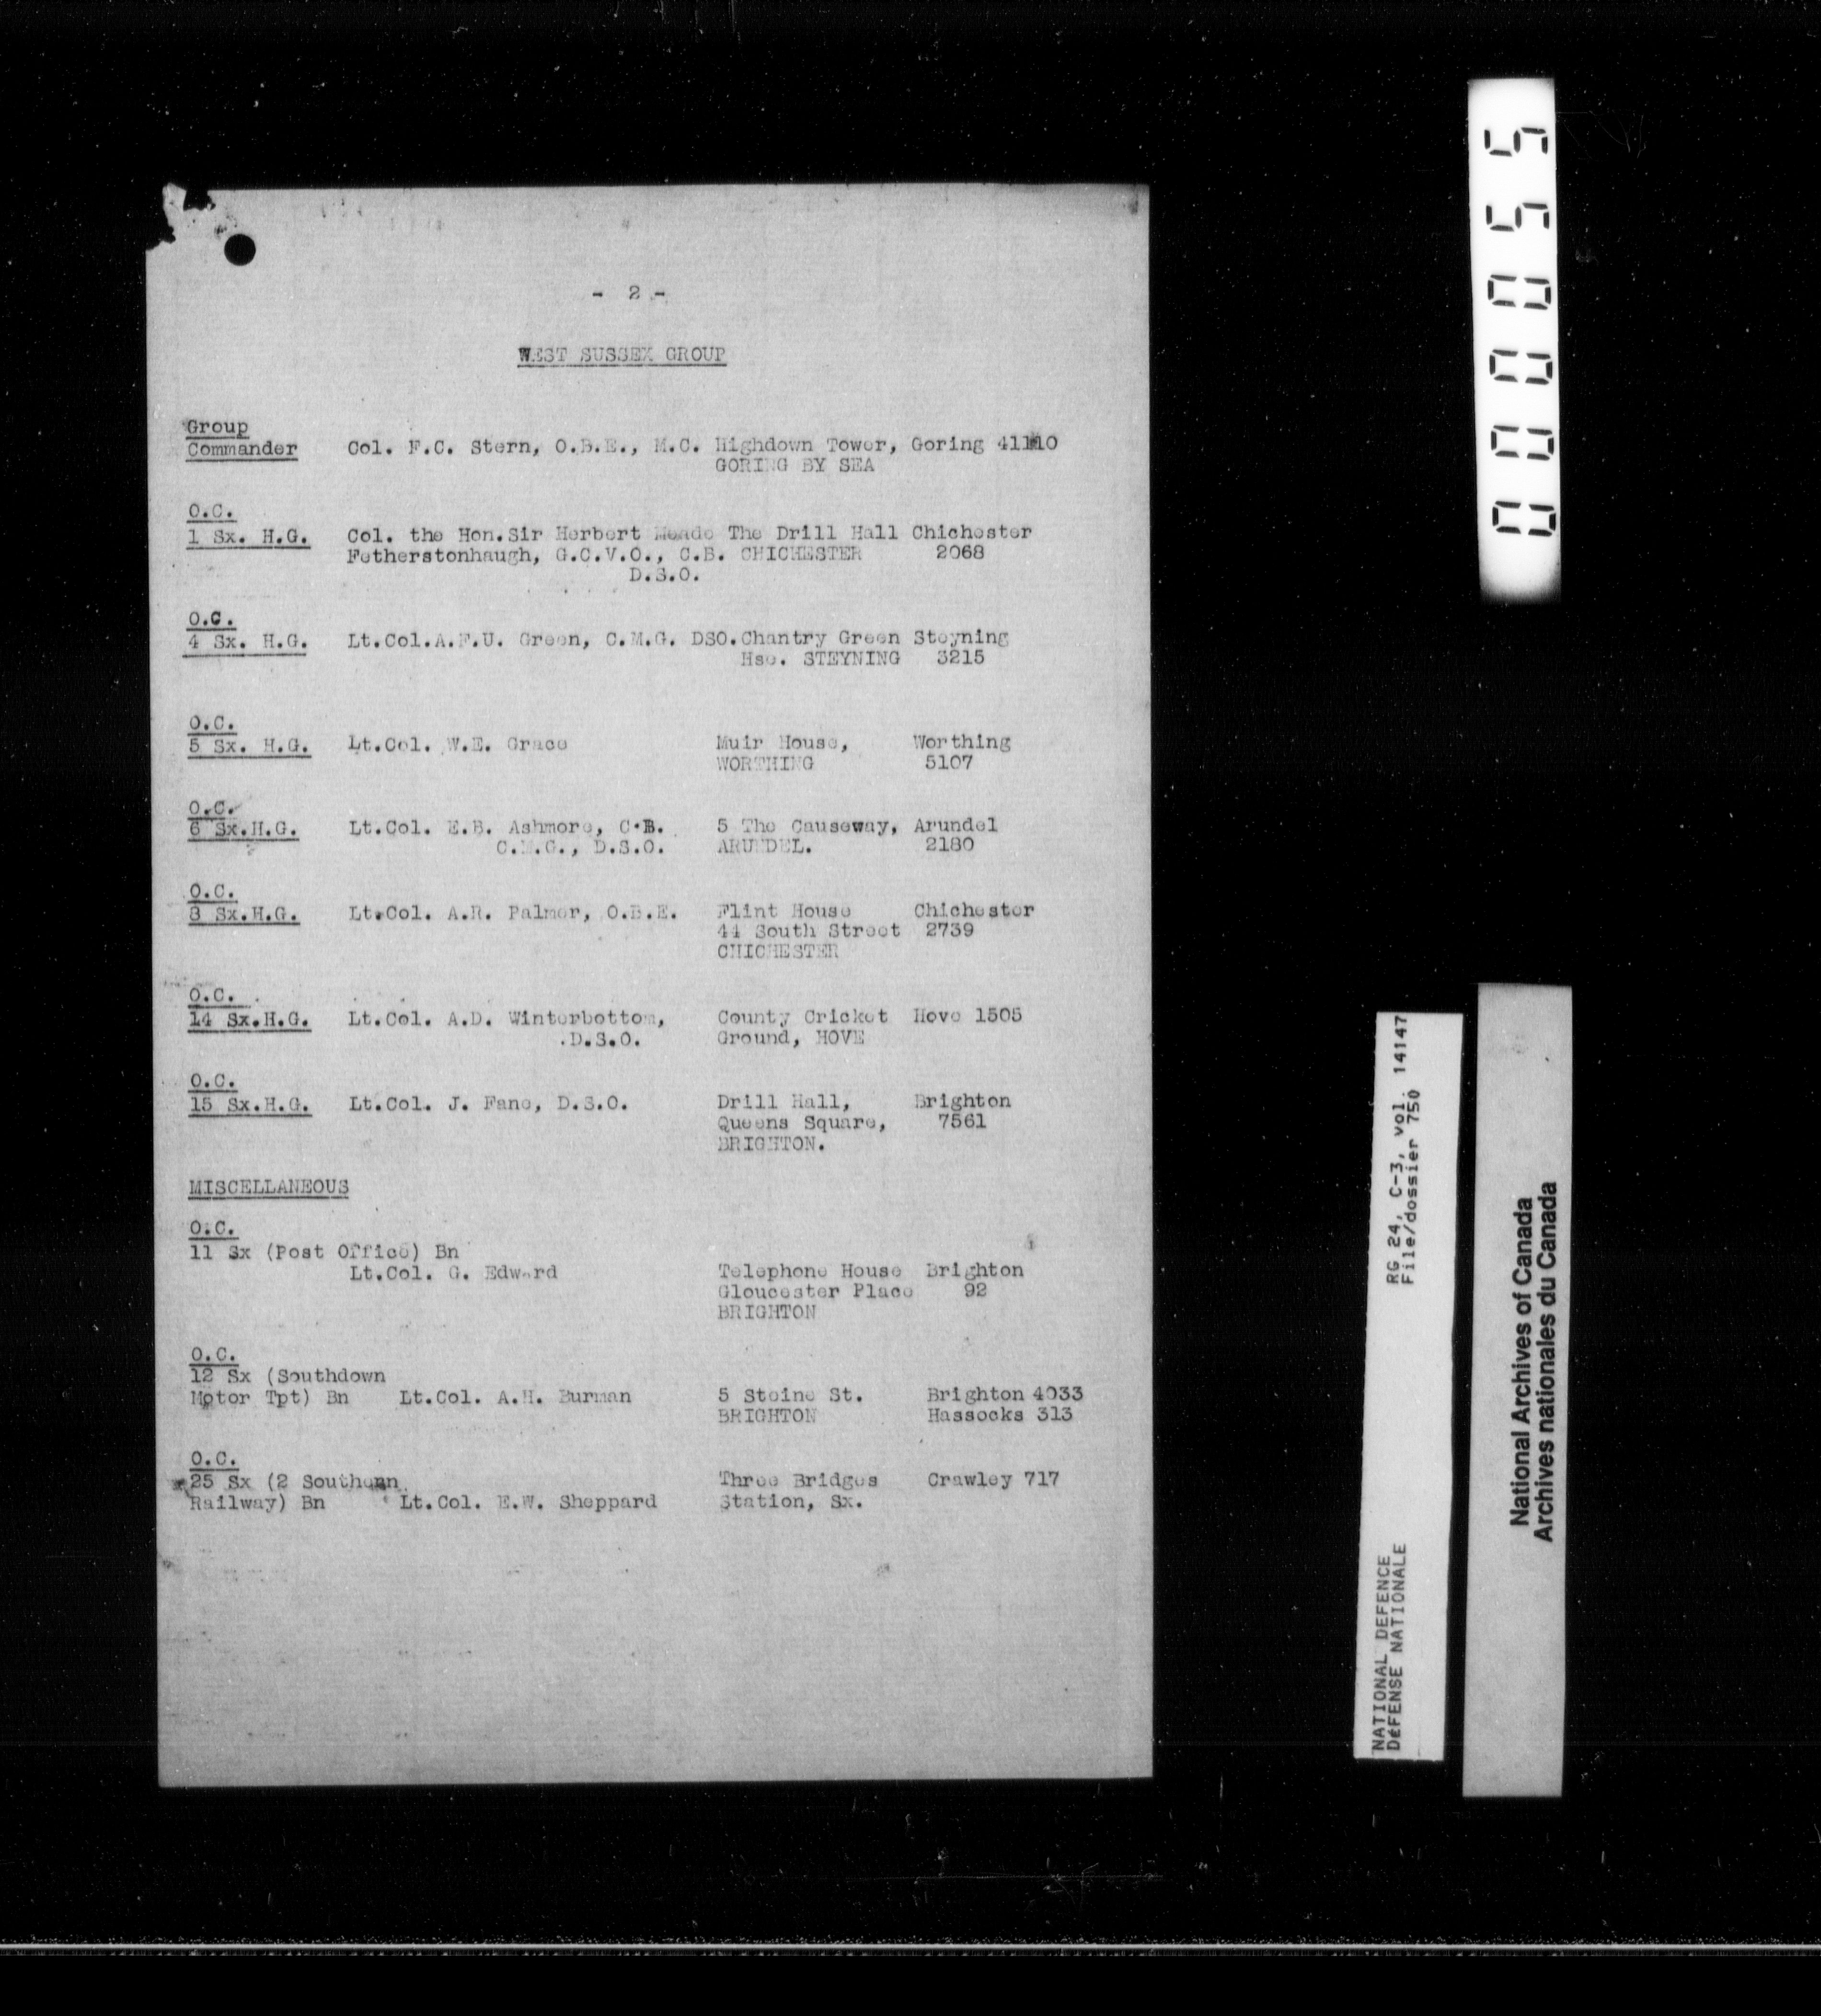 - 2 -
WEST SUSSEX GROUP
Group
Commander Col. F.C. Stern, O.B.E., M.C. Highdown Tower, Goring 41110
GORING BY SEA
O.C.
1 Sx. H.G. Col. the Hon.Sir Herbert Meade The Drill Hall Chichester
Fetherstonhaugh, G.C.V.O., C.B. CHICHESTER 2068
D.S.O.
O.C.
4 Sx. H.G. Lt.Col.A.F.U. Green, C.M.G. DSO.Chantry Green Steyning
Hse. STEYNING 3215
O.C.
5 Sx. H.G. Lt.Col. W.E. Grace Muir House, Worthing
WORTHING 5107
O.C.
6 Sx.H.G. Lt.Col. E.B. Ashmore, C.B. 5 The Causeway, Arundel
C.M.G., D.S.O. ARUNDEL. 2180
O.C.
8 Sx.H.G. Lt.Col. A.R. Palmer, O.B.E. Flint House Chichester
44 South Street 2739
CHICHESTER
O.C.
14 Sx.H.G. Lt.Col. A.D. Winterbottom, County Cricket Hove 1505
D.S.O. Ground, HOVE
O.C.
15 Sx.H.G. Lt.Col. J. Fane, D.S.O. Drill Hall, Brighton
Queens Square, 7561
BRIGHTON.
MISCELLANEOUS
O.C.
11 Sx (Post Office) Bn
Lt.Col. G. Edward Telephone House Brighton
Gloucester Place 92
BRIGHTON
O.C.
12 Sx (Southdown
Motor Tpt) Bn Lt.Col. A.H. Burman 5 Steine St. Brighton 4033
BRIGHTON Hassocks 313
O.C.
25 Sx (2 Southern Three Bridges Crawley 717
Railway) Bn Lt.Col. E.W. Sheppard Station, Sx.
000055
RG 24, C-3, vol. 14147
File/dossier 750
NATIONAL DEFENCE
DÉFENSE NATIONALE
National Archives of Canada
Archives nationales du Canada